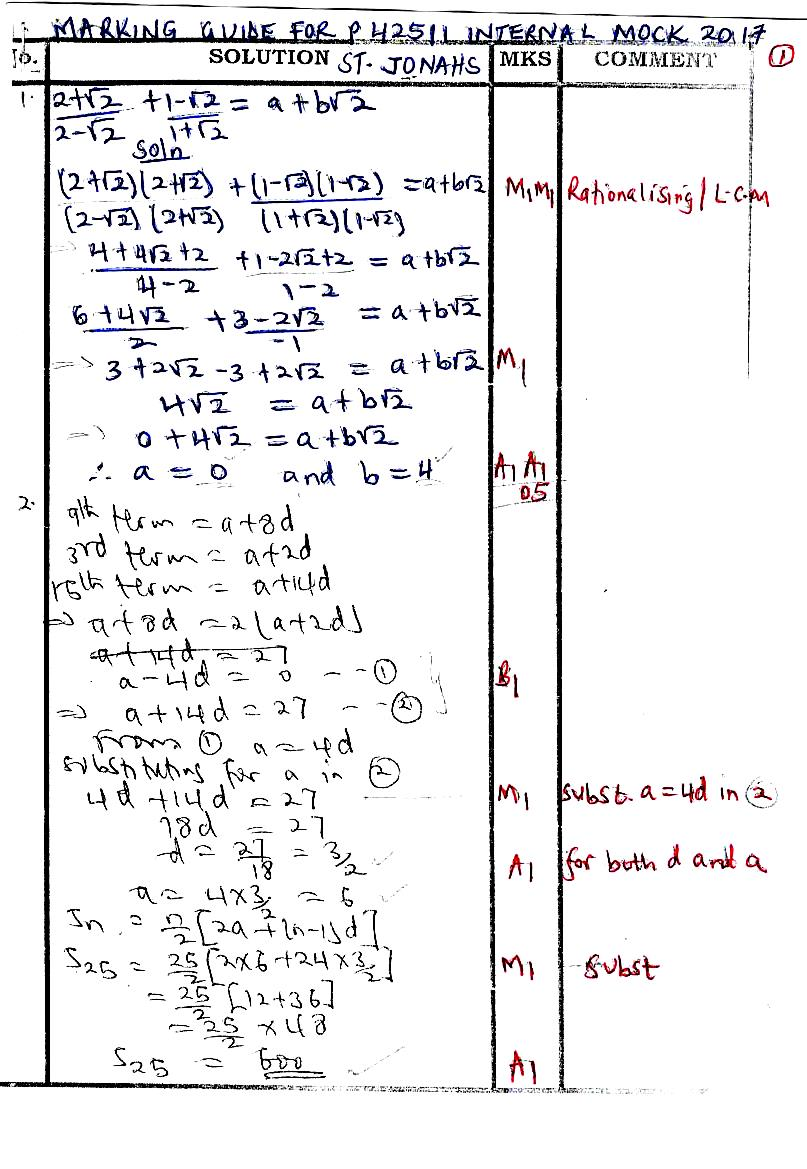 MARKING GUIDE FOR P 425/1 INTERNAL MOCK 2017
No. SOLUTION ST. JONAHS MKS COMMENT ①
1. (2+√2)/(2-√2) + (1-√2)/(1+√2) = a+b√2
Soln
(2+√2)(2+√2)/(2-√2)(2+√2) + (1-√2)(1-√2)/(1+√2)(1-√2) = a+b√2 M1M1 Rationalising / L.C.M
=> (4+4√2+2)/(4-2) + (1-2√2+2)/(1-2) = a+b√2
(6+4√2)/2 + (3-2√2)/-1 = a+b√2
=> 3+2√2 -3+2√2 = a+b√2 M1
4√2 = a+b√2
=> 0+4√2 = a+b√2
∴ a = 0 and b = 4 A1 A1
05
2. 9th term = a+8d
3rd term = a+2d
15th term = a+14d
=> a+8d = 2(a+2d)
a+14d = 27
a-4d = 0 -- ① B1
=> a+14d = 27 -- ②
From ① a = 4d
substituting for a in ②
4d + 14d = 27 M1 subst. a=4d in ②
18d = 27
d = 27/18 = 3/2 A1 for both d and a
a = 4×3/2 = 6
Sn = n/2[2a+(n-1)d]
S25 = 25/2[2×6+24×3/2] M1 subst
= 25/2[12+36]
= 25/2 × 48
S25 = 600 A1